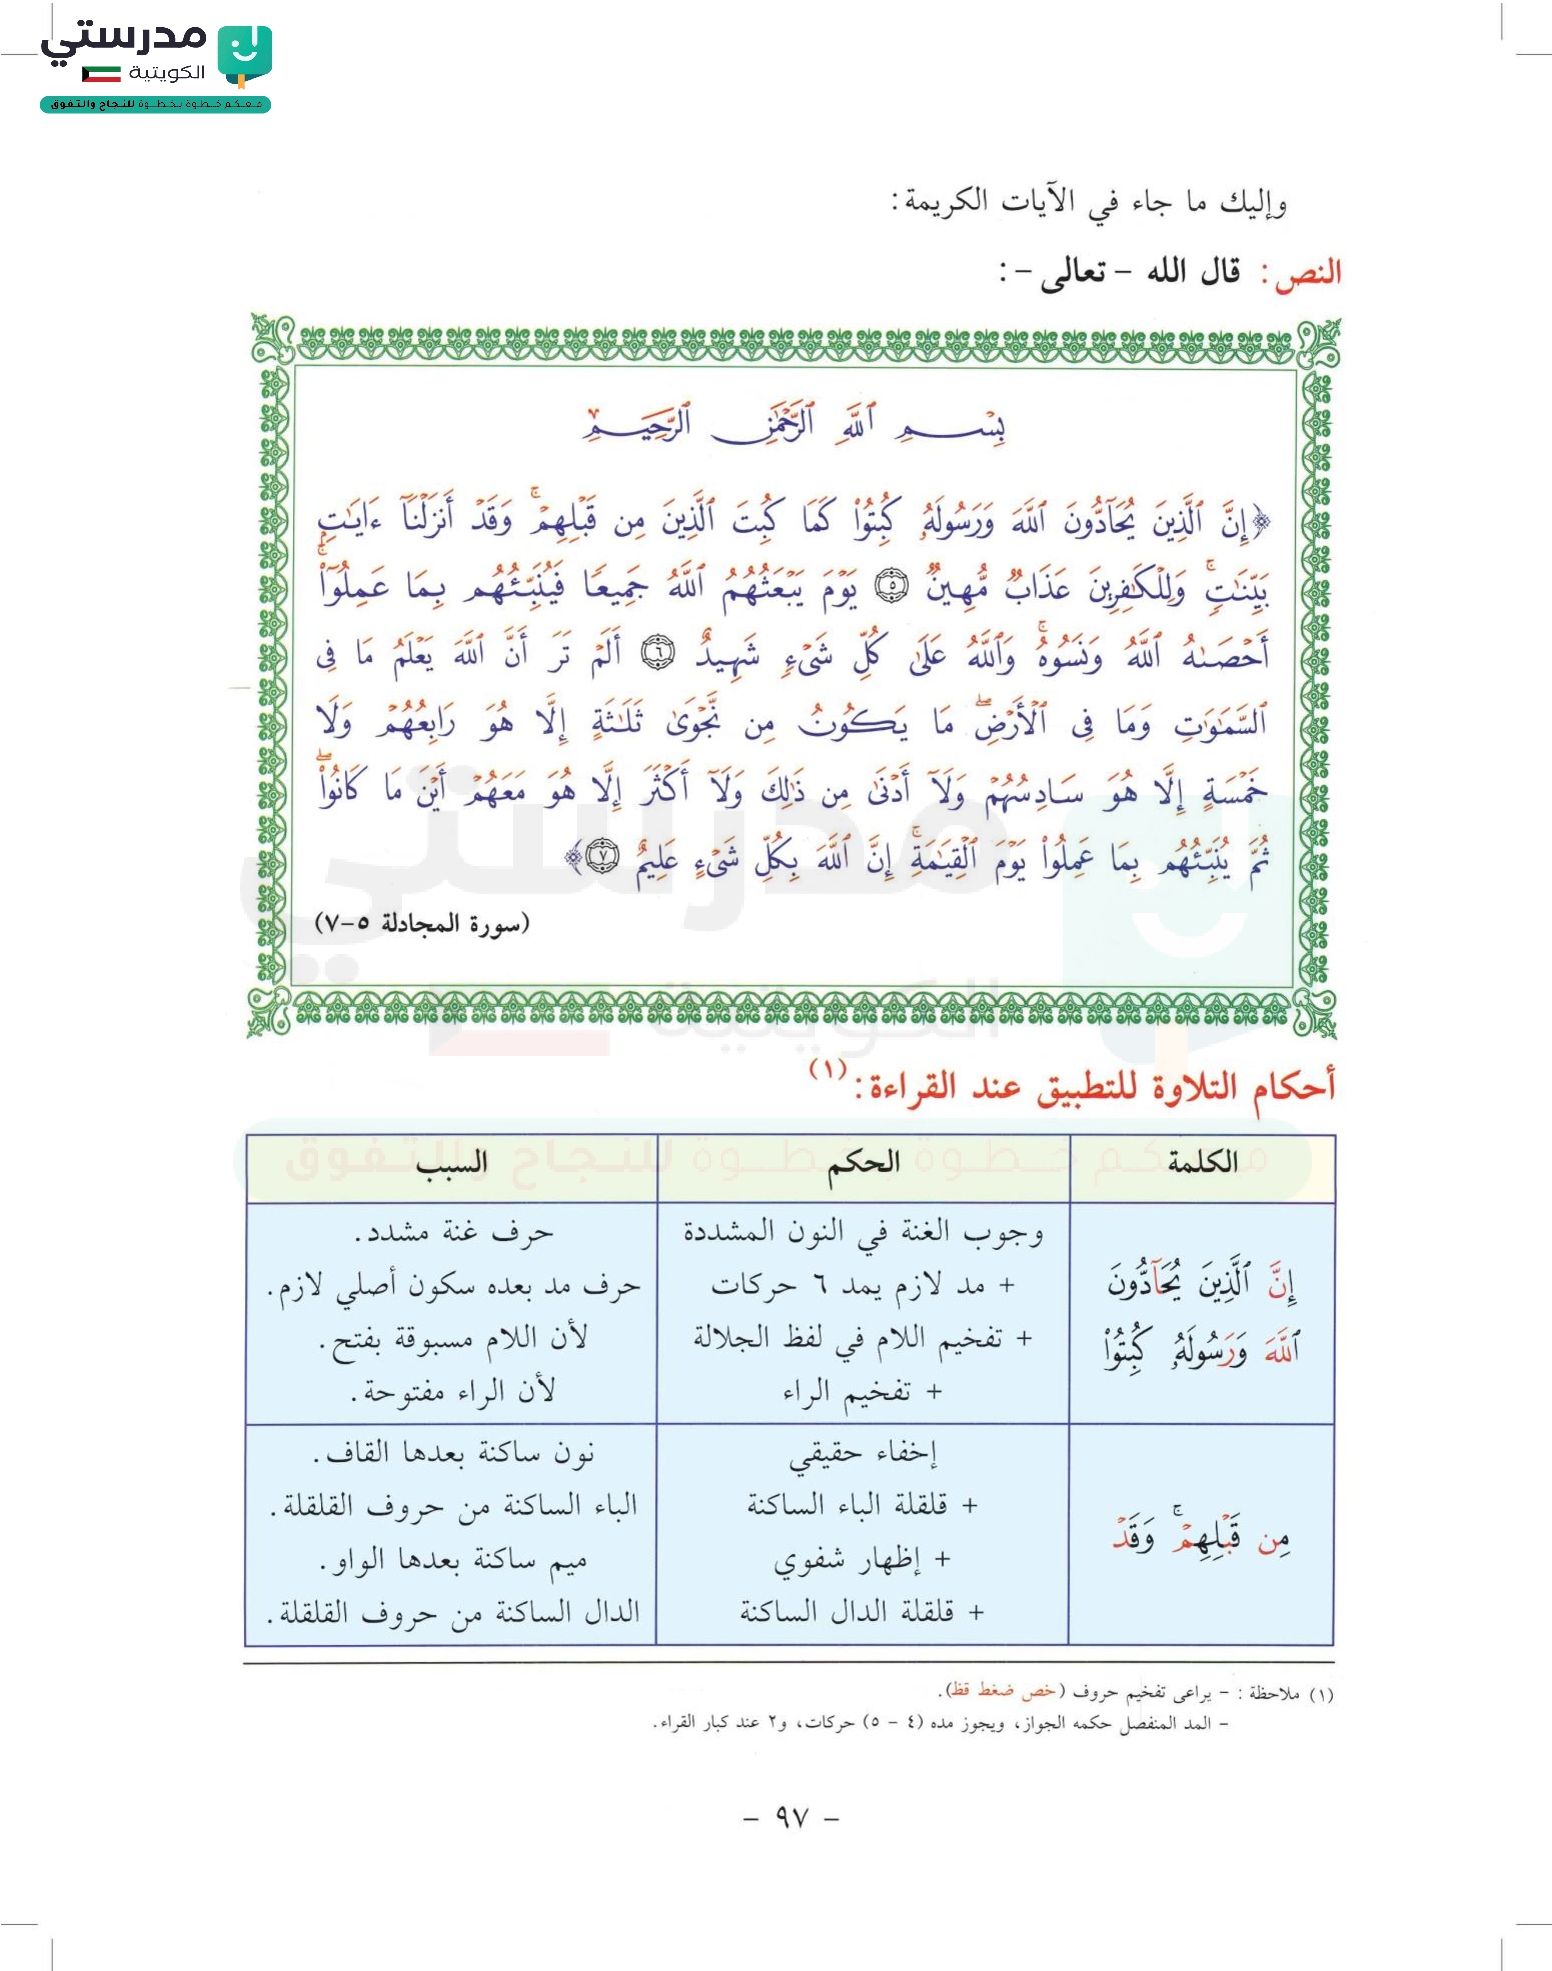 مدرستي
الكويتية
معكم خطوة بخطوة للنجاح والتفوق
وإليك ما جاء في الآيات الكريمة:
النص: قال الله - تعالى -:
بِسْمِ ٱللَّهِ ٱلرَّحْمَٰنِ ٱلرَّحِيمِ
﴿إِنَّ ٱلَّذِينَ يُحَآدُّونَ ٱللَّهَ وَرَسُولَهُۥ كُبِتُوا۟ كَمَا كُبِتَ ٱلَّذِينَ مِن قَبْلِهِمْ ۚ وَقَدْ أَنزَلْنَآ ءَايَٰتٍۭ
بَيِّنَٰتٍ ۚ وَلِلْكَٰفِرِينَ عَذَابٌ مُّهِينٌ ٥ يَوْمَ يَبْعَثُهُمُ ٱللَّهُ جَمِيعًا فَيُنَبِّئُهُم بِمَا عَمِلُوٓا۟ ۚ
أَحْصَىٰهُ ٱللَّهُ وَنَسُوهُ ۚ وَٱللَّهُ عَلَىٰ كُلِّ شَىْءٍ شَهِيدٌ ٦ أَلَمْ تَرَ أَنَّ ٱللَّهَ يَعْلَمُ مَا فِى
ٱلسَّمَٰوَٰتِ وَمَا فِى ٱلْأَرْضِ ۖ مَا يَكُونُ مِن نَّجْوَىٰ ثَلَٰثَةٍ إِلَّا هُوَ رَابِعُهُمْ وَلَا
خَمْسَةٍ إِلَّا هُوَ سَادِسُهُمْ وَلَآ أَدْنَىٰ مِن ذَٰلِكَ وَلَآ أَكْثَرَ إِلَّا هُوَ مَعَهُمْ أَيْنَ مَا كَانُوا۟ ۖ
ثُمَّ يُنَبِّئُهُم بِمَا عَمِلُوا۟ يَوْمَ ٱلْقِيَٰمَةِ ۚ إِنَّ ٱللَّهَ بِكُلِّ شَىْءٍ عَلِيمٌ ٧﴾
(سورة المجادلة ٥-٧)
أحكام التلاوة للتطبيق عند القراءة:(١)
الكلمة الحكم السبب
إِنَّ ٱلَّذِينَ يُحَآدُّونَ
ٱللَّهَ وَرَسُولَهُۥ كُبِتُوا۟
وجوب الغنة في النون المشددة حرف غنة مشدد.
+ مد لازم يمد ٦ حركات حرف مد بعده سكون أصلي لازم.
+ تفخيم اللام في لفظ الجلالة لأن اللام مسبوقة بفتح.
+ تفخيم الراء لأن الراء مفتوحة.
مِن قَبْلِهِمْ ۚ وَقَدْ
إخفاء حقيقي نون ساكنة بعدها القاف.
+ قلقلة الباء الساكنة الباء الساكنة من حروف القلقلة.
+ إظهار شفوي ميم ساكنة بعدها الواو.
+ قلقلة الدال الساكنة الدال الساكنة من حروف القلقلة.
(١) ملاحظة : - يراعى تفخيم حروف (خص ضغط قظ).
- المد المنفصل حكمه الجواز، ويجوز مده (٤ - ٥) حركات، و٢ عند كبار القراء.
- ٩٧ -